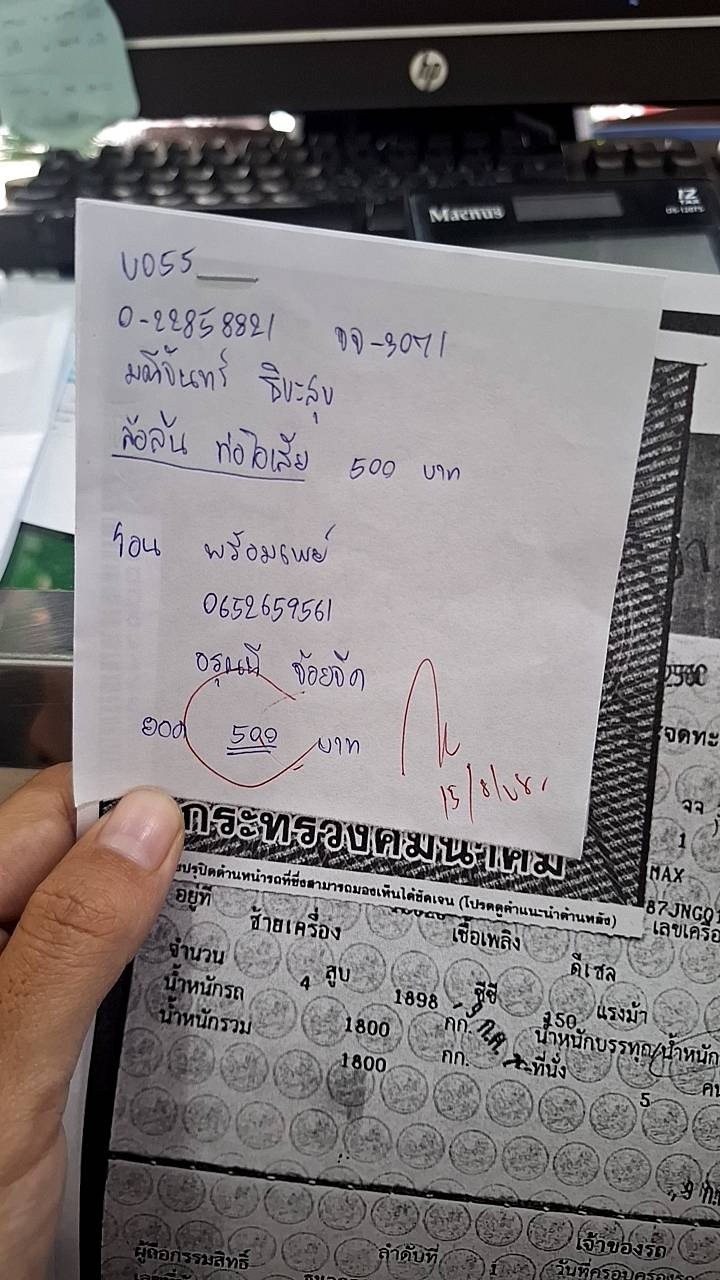 hp
Macnus
12
TAX
บ055
0-22858821 จจ-3071
มณีจันทร์ ธิษะสุข
ล้อล้น ท่อไอเสีย 500 บาท
โอน พร้อมเพย์
0652659561
อรุณนี จ้อยจิด
ยอด 500 บาท
15/8/
2560
จดทะ
จจ
1
MAX
87JNG01
เลขเครื่อ
กระทรวงคมนาคม
(โปรดดูคำแนะนำด้านหลัง)
อยู่ที่ ซ้ายเครื่อง เชื้อเพลิง ดีเซล
จำนวน 4 สูบ 1898 ซีซี 150 แรงม้า
น้ำหนักรถ 1800 กก. น้ำหนักบรรทุก/น้ำหนัก
น้ำหนักรวม 1800 กก. ที่นั่ง 5 คน
ผู้ถือกรรมสิทธิ์ ลำดับที่ 1 เจ้าของรถ
วันที่ครอบครอง